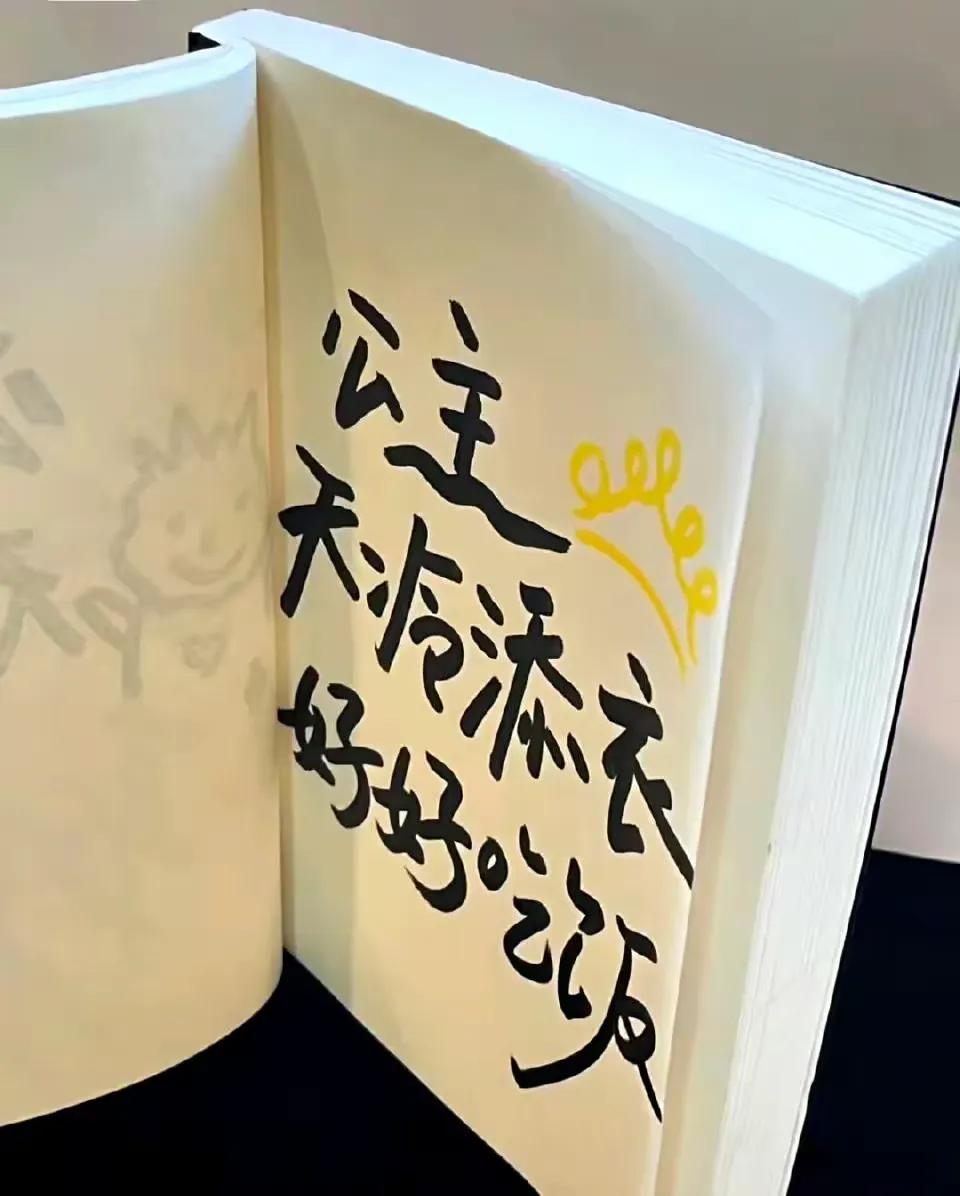 公主
天冷添衣
好好吃饭